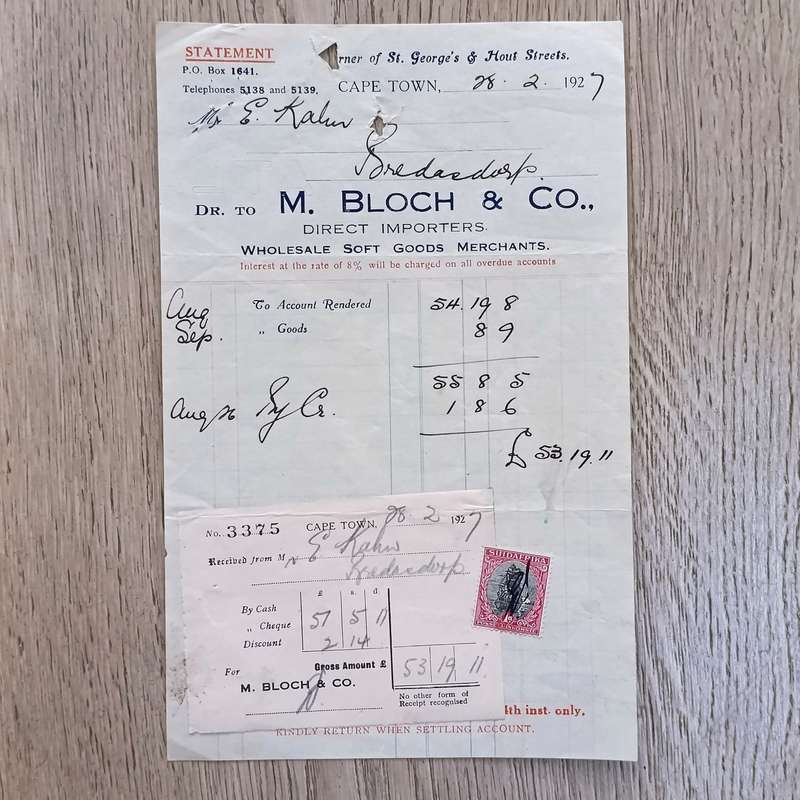 STATEMENT
rner of St. George's & Hout Streets.
P.O. Box 1641.
Telephones 5138 and 5139.
CAPE TOWN, 28. 2. 1927
Mr E. Kahn
Bredasdorp.
DR. TO M. BLOCH & CO.,
DIRECT IMPORTERS.
WHOLESALE SOFT GOODS MERCHANTS.
Interest at the rate of 8% will be charged on all overdue accounts
Aug To Account Rendered 54 19 8
Sep. „ Goods 8 9
55 8 5
Aug 26 By Cr. 1 8 6
£ 53. 19. 11
No. 3375 CAPE TOWN, 28 2 1927
Received from Mr E Kahn
Bredasdorp
£ s. d
By Cash
„ Cheque 51 5 11
Discount 2 14
Gross Amount £ 53 19 11
For
M. BLOCH & CO.
No other form of
Receipt recognised
SUIDAFRIKA
4th inst. only.
KINDLY RETURN WHEN SETTLING ACCOUNT.